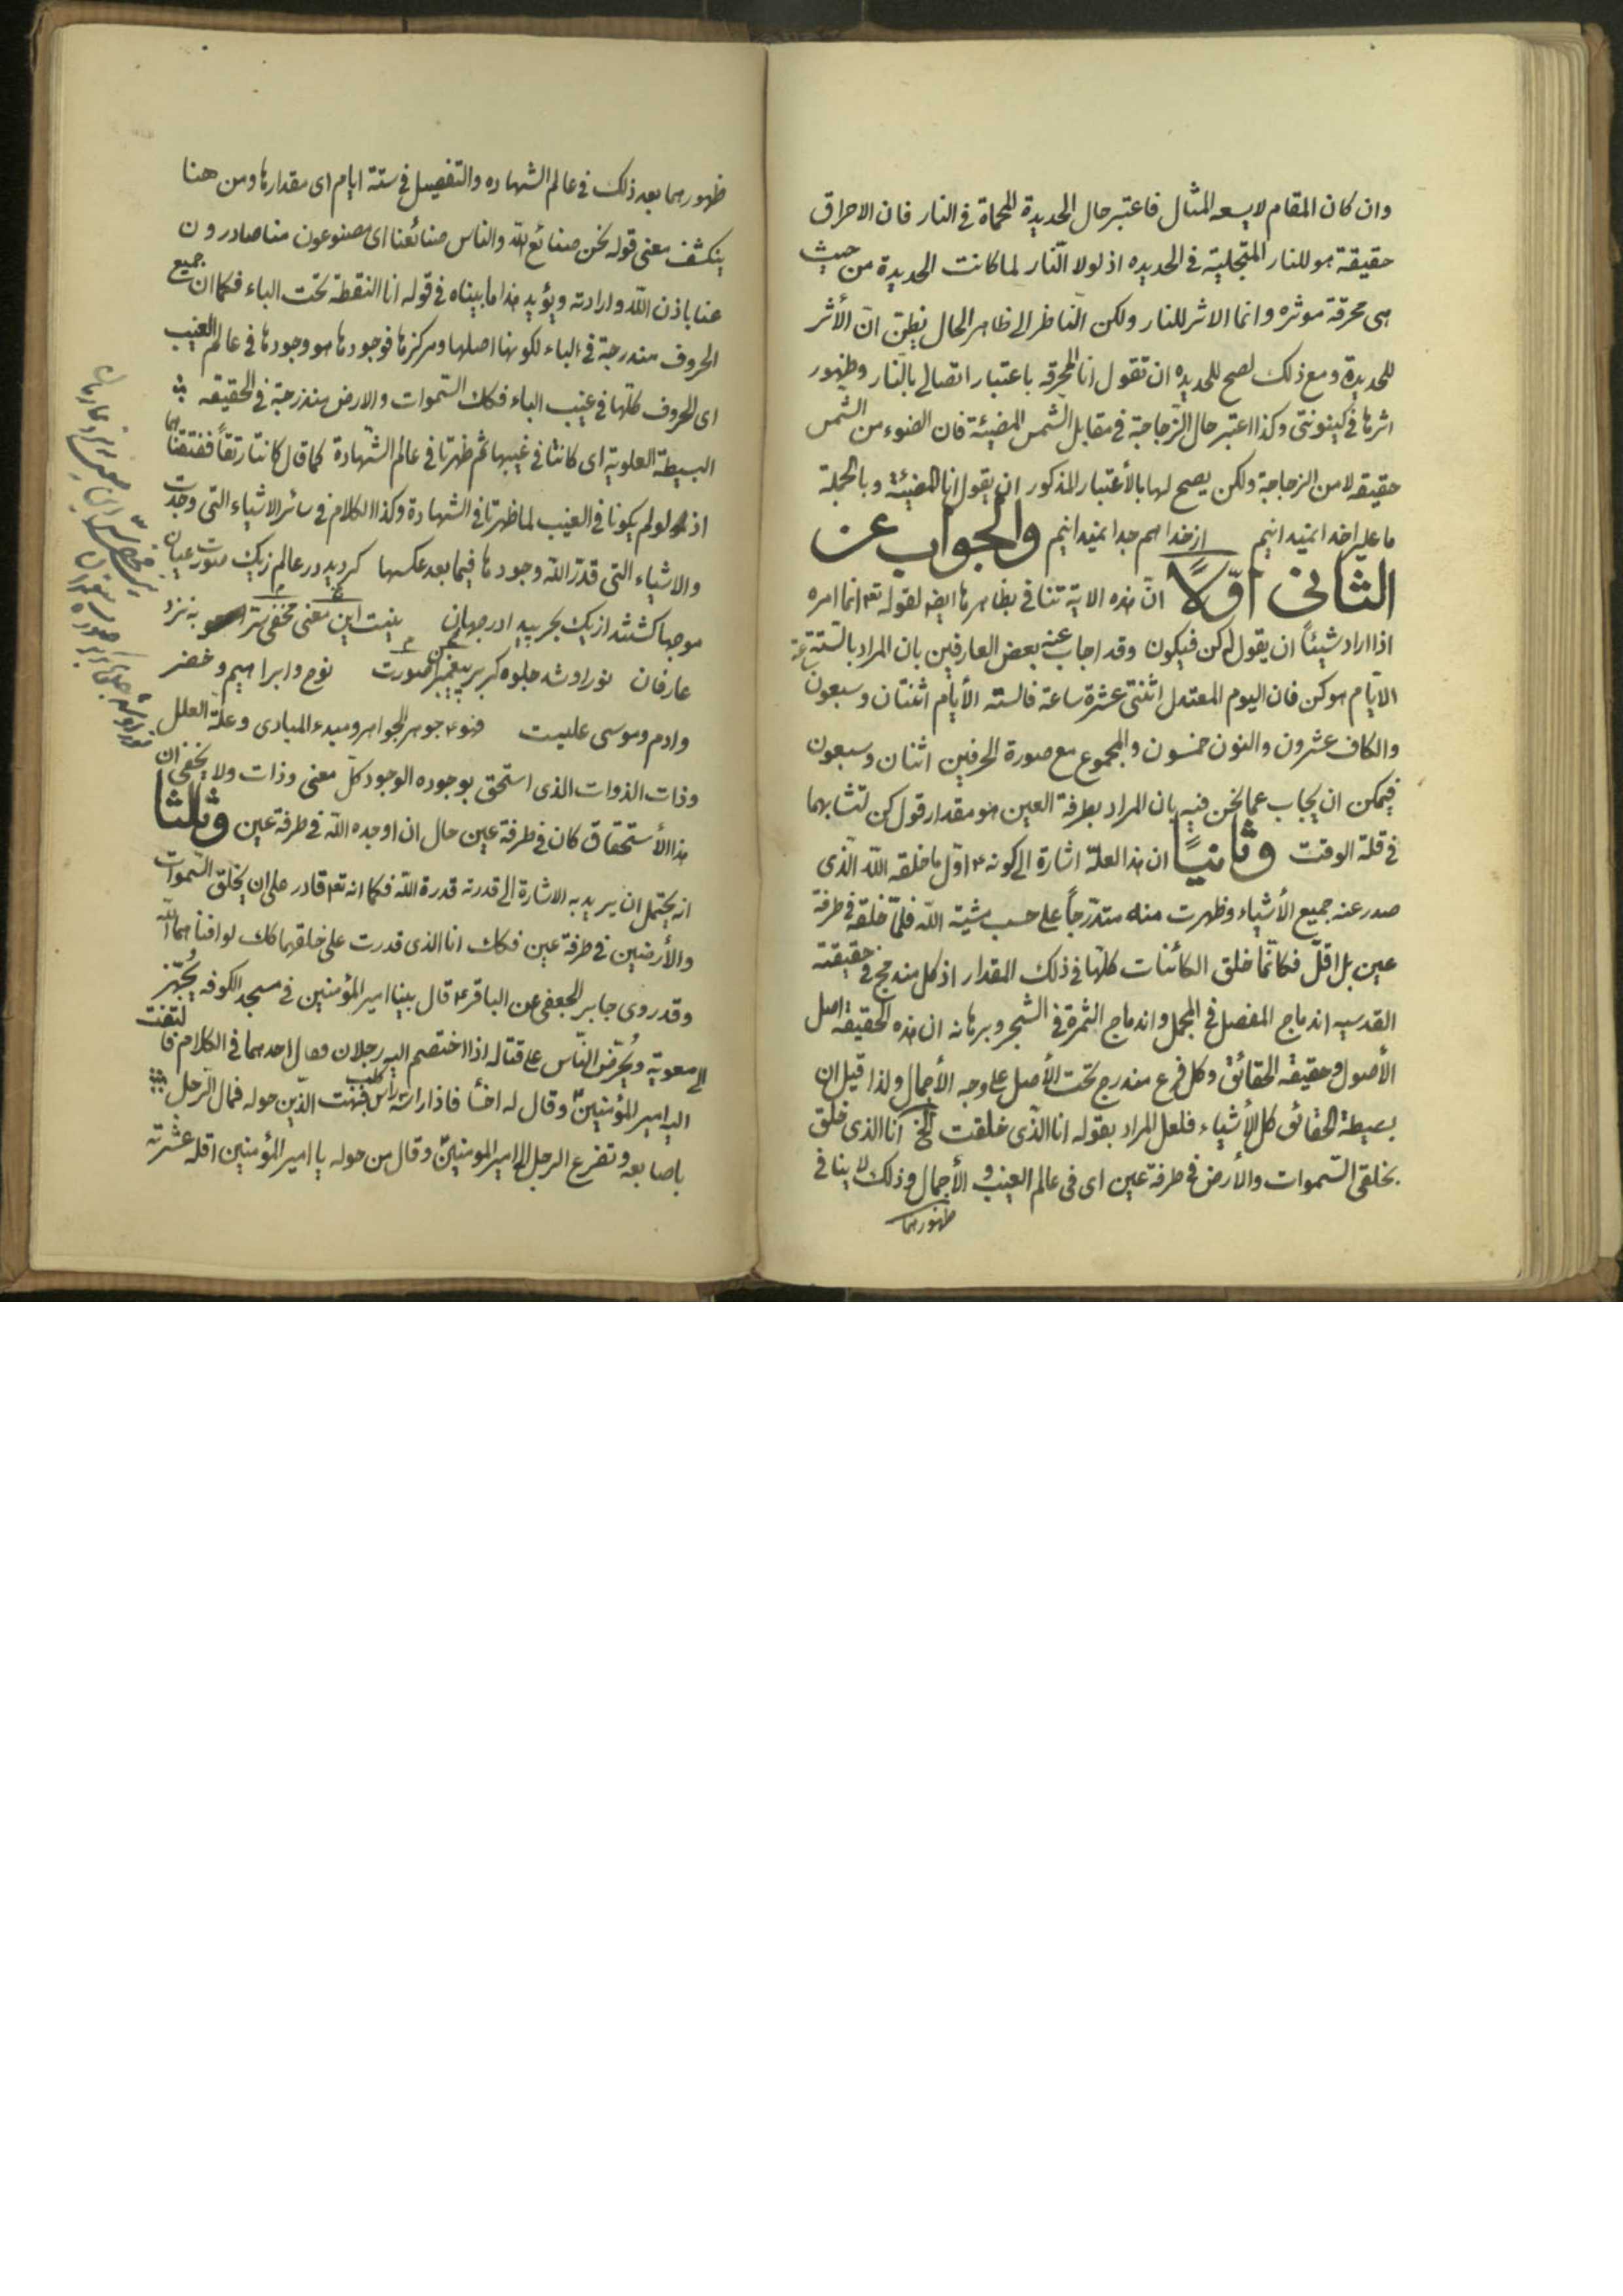 وان كان المقام لا يسعه المثال فاعتبر حال الحديدة المحماة في النار فان الاحراق
حقيقة هو للنار المتجلية في الحديده اذ لولا النّار لما كانت الحديدة من حيث
هى محرقة موثره وانما الاثر للنار ولكن النّاظر الى ظاهر الحال يظنّ انّ الأثر
للحديدة ومع ذلك لصح للحديده ان تقول انا المحرقه باعتبار اتصالى بالنّار وظهور
اثرها في كينونتى وكذا اعتبر حال الزّجاجة في مقابل الشّمس المضيئة فان الضوء من الشمس
حقيقه لا من الزجاجة ولكن يصح لها بالأعتبار المذكور ان يقول انا المضيئة وبالجملة
ما على را خدا نميدانيم از خدا هم جدا نميدانيم والجواب عن
الثانى اوّلاً انّ هذه الاية تنافى بظاهرها ايضا لقوله تع انما امره
اذا اراد شيئاً ان يقول له كن فيكون وقد اجاب عنه بعض العارفين بان المراد بالستة
الايّام هو كن فان اليوم المعتدل اثنتى عشرة ساعة فالسته الأيام اثنتان وسبعون ساعة
والكاف عشرون والنون خمسون والمجموع مع صورة الحرفين اثنان وسبعون
فيمكن ان يجاب عما نحن فيه بان المراد بطرفة العين هو مقدار قول كن لتشابهما
في قلة الوقت وثانياً ان هذا العلّة اشارة الى كونه ع اوّل ما خلقه اللّه الّذى
صدر عنه جميع الأشياء وظهرت منه متدرّجاً على حسب مشية اللّه فلمّا خلقه في طرفة
عين بل اقلّ فكانّما خلق الكائنات كلّها في ذلك المقدار اذ كل مندمج في حقيقته
القدسيه اندماج المفصل في المجمل واندماج الثمرة في الشجر وبرهانه ان هذه الحقيقة اصل
الأصول وحقيقه الحقائق وكل فرع مندرج تحت الأصل على وجه الأجمال ولذا قيل ان
بسيطة الحقائق كل الأشياء فلعل المراد بقوله انا الّذى خلقت الخ انا الذى خلق
بخلقى السّموات والأرض في طرفة عين اى فى عالم الغيب والأجمال وذلك لا ينافى
ظهورهما
ظهورهما بعد ذلك في عالم الشهاده والتفصيل في ستة ايام اى مقدارها ومن هنا
ينكشف معنى قوله نحن صنائع اللّه والناس صنائعنا اى مصنوعون منا صادرون
عنا باذن اللّه وارادته ويؤيد هذا ما بيناه في قوله انا النقطة تحت الباء فكما ان جميع
الحروف مندرجة في الباء لكونها اصلها ومركزها فوجودها هو وجودها في عالم الغيب
اى الحروف كلها في غيب الباء فكك السّموات والارض مندرجة في الحقيقه
البسيطة العلوية اى كانتا في غيبها ثم ظهرتا في عالم الشّهادة كما قال كانتا رتقاً ففتقناهما
اذ لو لم يكونا في الغيب لما ظهرتا في الشهادة وكذا الكلام في سائر الاشياء التى وجدت
والاشياء التى قدّر اللّه وجودها فيما بعد عكسها كرديد در عالم زيك صورت عيان
موجها كشتند از يك بحر پيدا در جهان نيست اين معنى مخفى به نزد
عارفان نور او شد جلوه كر بر پيغمبران صورت نوح وابراهيم وخضر
وادم وموسى عليست فهو ع جوهر الجواهر ومبدء المبادى وعلّة العلل
وذات الذوات الذى استحق بوجوده الوجود كلّ معنى وذات ولا يخفى ان
هذا الأستحقاق كان في طرفة عين حال ان اوجده اللّه في طرفة عين وثلثا
انه يحتمل ان يريد به الاشارة الى قدرته قدرة اللّه فكما انه تع قادر على ان يخلق السّموات
والأرضين في طرفة عين فكك انا الذى قدرت على خلقهما كك لو اذننا هما اللّه
وقد روى جابر الجعفى عن الباقر ع قال بينا امير المؤمنين في مسجد الكوفه يُجهّز
الى معوية ويُحرّض النّاس على قتاله اذا اختصم اليه رجلان وعال احدهما في الكلام فالتفت
اليه امير المؤمنين وقال له اخسأ فاذا راسه راس كلب فبهت الّذين حوله فمال الرّجل
باصابعه وتضرع الرجل الى امير المومنين وقال من حوله يا امير المؤمنين اقله عثرته